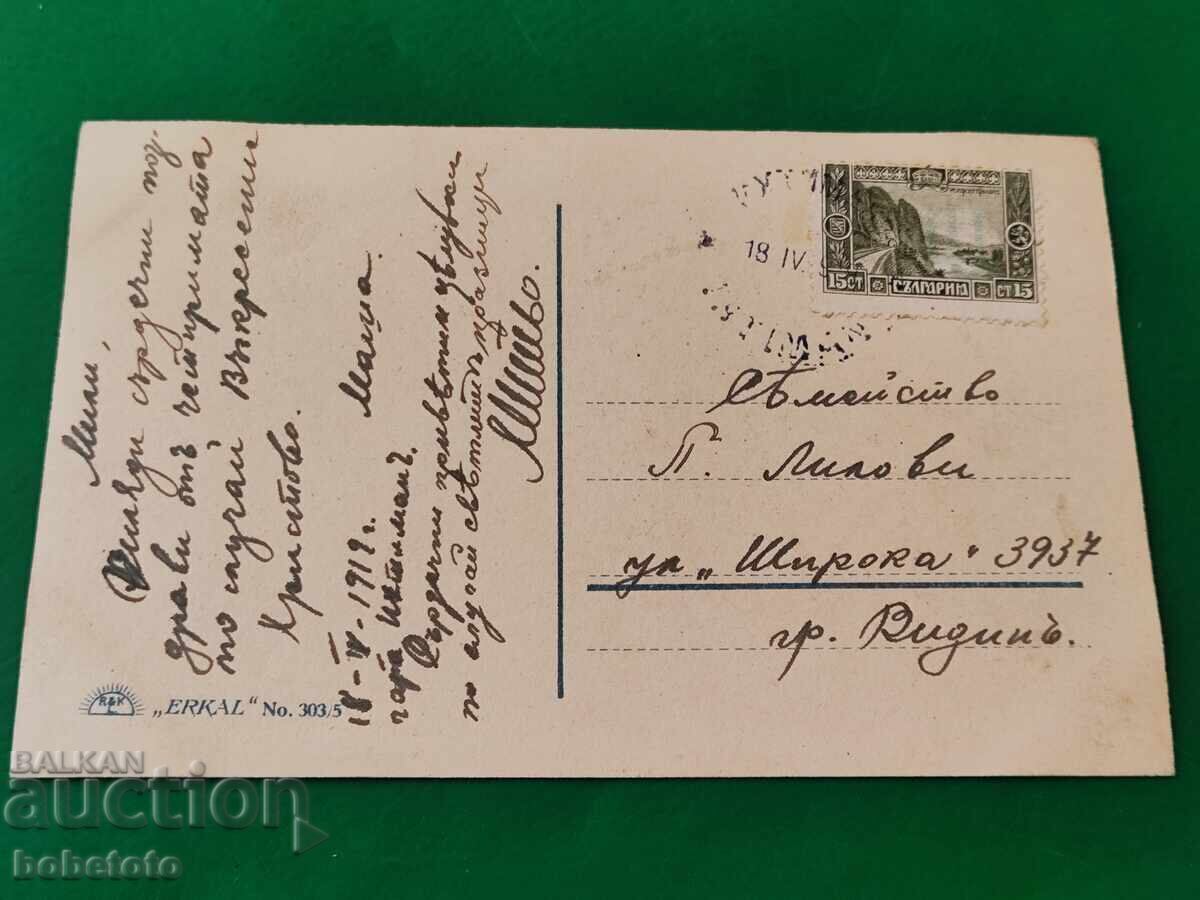 Мили,
Хиляди сърдечни поз-
драви отъ четиримата
по случай Възкресение
Христово.
Маша.
18-IV-1919 г.
гара Ихтиманъ.
Сърдечни привѣти и цѣлувки
по случай свѣтлитѣ празници
Мишо.
"ERKAL" No. 303/5
R&K
L
18 IV
15 СТ БЪЛГАРИЯ СТ 15
Сѣмейство
П. Лилови
ул. "Широка" 3937
гр. Видинъ.
BALKAN
auction
bobetoto